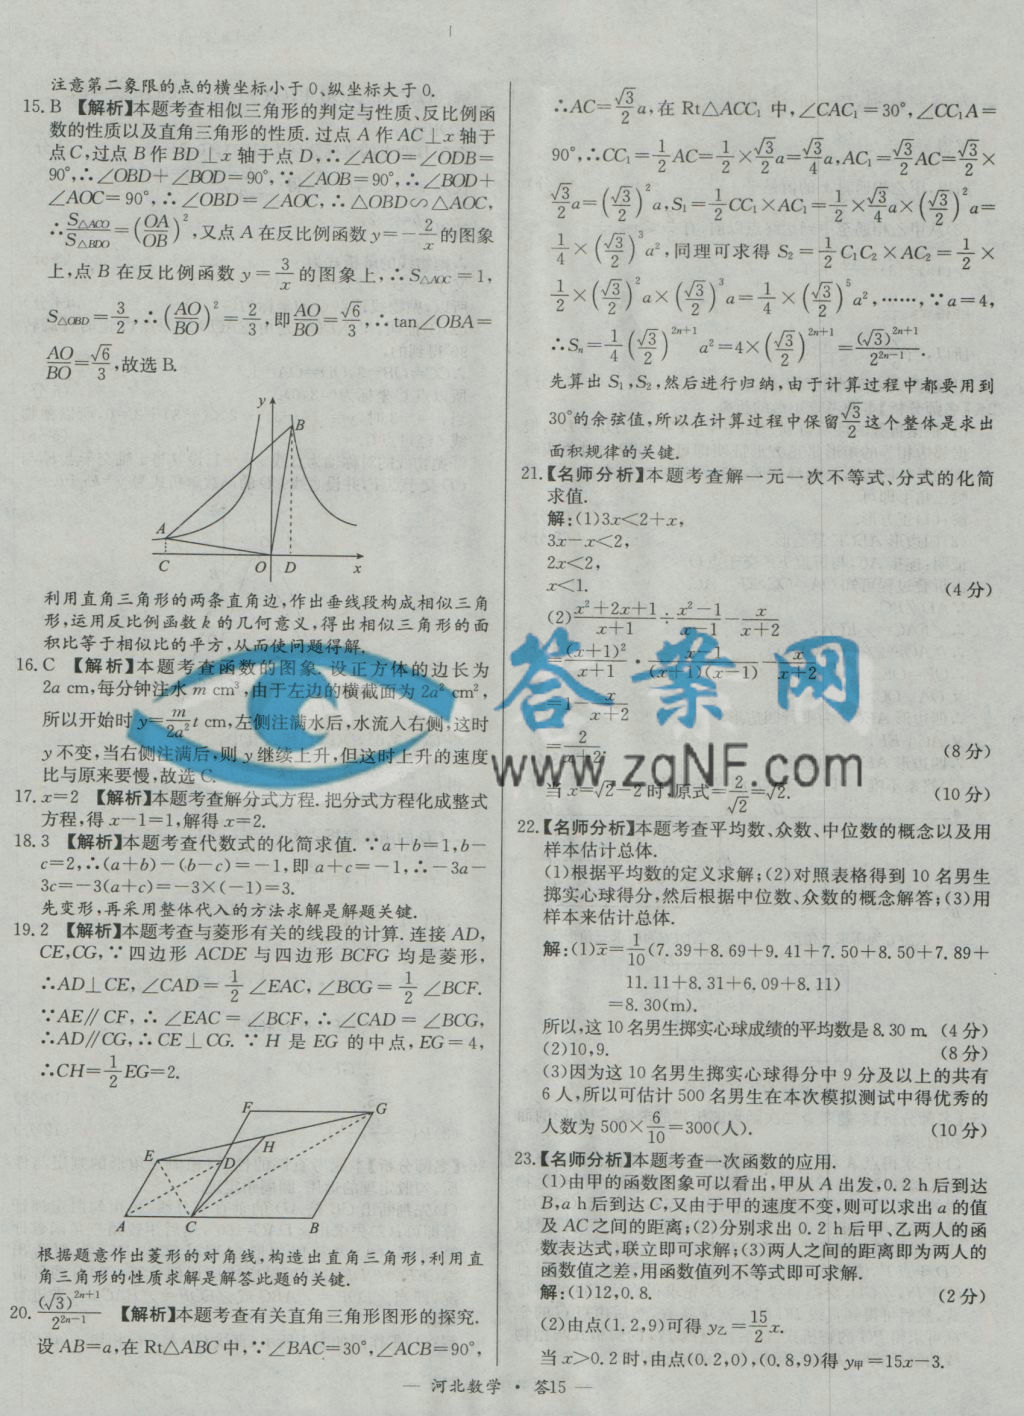 注意第二象限的点的横坐标小于0、纵坐标大于0.
15. B 【解析】本题考查相似三角形的判定与性质、反比例函
数的性质以及直角三角形的性质. 过点 A 作 AC⊥x 轴于
点C,过点 B 作 BD⊥x 轴于点 D,∴∠ACO=∠ODB=
90°,∴∠OBD+∠BOD=90°,∵∠AOB=90°,∴∠BOD+
∠AOC=90°,∴∠OBD=∠AOC,∴△OBD∽△AOC,
∴S△ACO/S△BDO=(OA/OB)²,又点 A 在反比例函数 y=-2/x 的图象
上,点 B 在反比例函数 y=3/x 的图象上,∴S△AOC=1,
S△OBD=3/2,∴(AO/BO)²=2/3,即AO/BO=√6/3,∴tan∠OBA=
AO/BO=√6/3,故选 B.
y
B
A
C
O
D
x
利用直角三角形的两条直角边,作出垂线段构成相似三角
形,运用反比例函数 k 的几何意义,得出相似三角形的面
积比等于相似比的平方,从而使问题得解.
16. C 【解析】本题考查函数的图象. 设正方体的边长为
2a cm,每分钟注水 m cm³,由于左边的横截面为 2a² cm²,
所以开始时 y=m/2a² t cm,左侧注满水后,水流入右侧,这时
y 不变,当右侧注满后,则 y 继续上升,但这时上升的速度
比与原来要慢,故选 C.
17. x=2 【解析】本题考查解分式方程. 把分式方程化成整式
方程,得 x-1=1,解得 x=2.
18. 3 【解析】本题考查代数式的化简求值. ∵a+b=1,b-
c=2,∴(a+b)-(b-c)=-1,即 a+c=-1,∴-3a-
3c=-3(a+c)=-3×(-1)=3.
先变形,再采用整体代入的方法求解是解题关键.
19. 2 【解析】本题考查与菱形有关的线段的计算. 连接 AD,
CE,CG,∵四边形 ACDE 与四边形 BCFG 均是菱形,
∴AD⊥CE,∠CAD=1/2∠EAC,∠BCG=1/2∠BCF.
∵AE∥CF,∴∠EAC=∠BCF,∴∠CAD=∠BCG,
∴AD∥CG,∴CE⊥CG. ∵H 是 EG 的中点,EG=4,
∴CH=1/2EG=2.
F
G
H
E
D
A
C
B
根据题意作出菱形的对角线,构造出直角三角形,利用直
角三角形的性质求解是解答此题的关键.
20. (√3)²ⁿ⁺¹/2²ⁿ⁻¹ 【解析】本题考查有关直角三角形图形的探究.
设 AB=a,在 Rt△ABC 中,∵∠BAC=30°,∠ACB=90°,
∴AC=√3/2 a,在 Rt△ACC₁ 中,∠CAC₁=30°,∠CC₁A=
90°,∴CC₁=1/2AC=1/2×√3/2 a=√3/4 a,AC₁=√3/2 AC=√3/2×
√3/2 a=(√3/2)² a,S₁=1/2 CC₁×AC₁=1/2×√3/4 a×(√3/2)² a=
1/4×(√3/2)³ a²,同理可求得 S₂=1/2 C₁C₂×AC₂=1/2×
1/2×(√3/2)² a×(√3/2)³ a=1/4×(√3/2)⁵ a²,……,∵a=4,
∴Sₙ=1/4(√3/2)²ⁿ⁺¹ a²=4×(√3/2)²ⁿ⁺¹=(√3)²ⁿ⁺¹/2²ⁿ⁻¹.
先算出 S₁,S₂,然后进行归纳,由于计算过程中都要用到
30°的余弦值,所以在计算过程中保留√3/2这个整体是求出
面积规律的关键.
21.【名师分析】本题考查解一元一次不等式、分式的化简
求值.
解:(1)3x<2+x,
3x-x<2,
2x<2,
x<1. (4 分)
(2)x²+2x+1/x+1÷x²-1/x-1-x/x+2
=(x+1)²/x+1·x-1/(x+1)(x-1)-x/x+2
=1-x/x+2
=2/x+2. (8 分)
当 x=√2-2 时,原式=2/√2=√2. (10 分)
22.【名师分析】本题考查平均数、众数、中位数的概念以及用
样本估计总体.
(1)根据平均数的定义求解;(2)对照表格得到 10 名男生
掷实心球得分,然后根据中位数、众数的概念解答;(3)用
样本来估计总体.
解:(1)x̄=1/10(7.39+8.69+9.41+7.50+8.50+7.89+
11.11+8.31+6.09+8.11)
=8.30(m).
所以,这 10 名男生掷实心球成绩的平均数是 8.30 m. (4 分)
(2)10,9. (8 分)
(3)因为这 10 名男生掷实心球得分中 9 分及以上的共有
6 人,所以可估计 500 名男生在本次模拟测试中得优秀的
人数为 500×6/10=300(人). (10 分)
23.【名师分析】本题考查一次函数的应用.
(1)由甲的函数图象可以看出,甲从 A 出发,0.2 h 后到达
B,a h 后到达 C,又由于甲的速度不变,则可以求出 a 的值
及 AC 之间的距离;(2)分别求出 0.2 h 后甲、乙两人的函
数表达式,联立即可求解;(3)两人之间的距离即为两人的
函数值之差,用函数值列不等式即可求解.
解:(1)12,0.8. (2 分)
(2)由点(1.2,9)可得 y乙=15/2 x.
当 x>0.2 时,由点(0.2,0),(0.8,9)得 y甲=15x-3.
答案网
www.zqNF.com
— 河北数学 · 答15 —